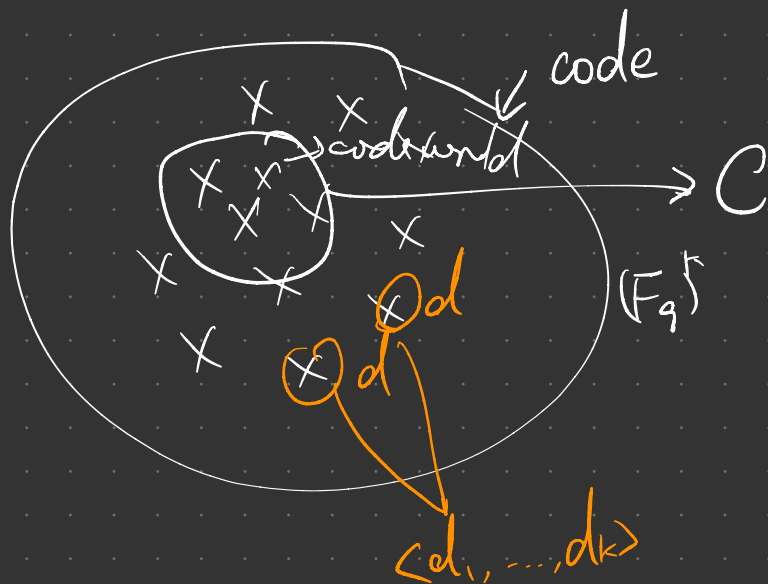 code
codeword
C
(F_q)^k
d
d
<d_1, ..., d_k>